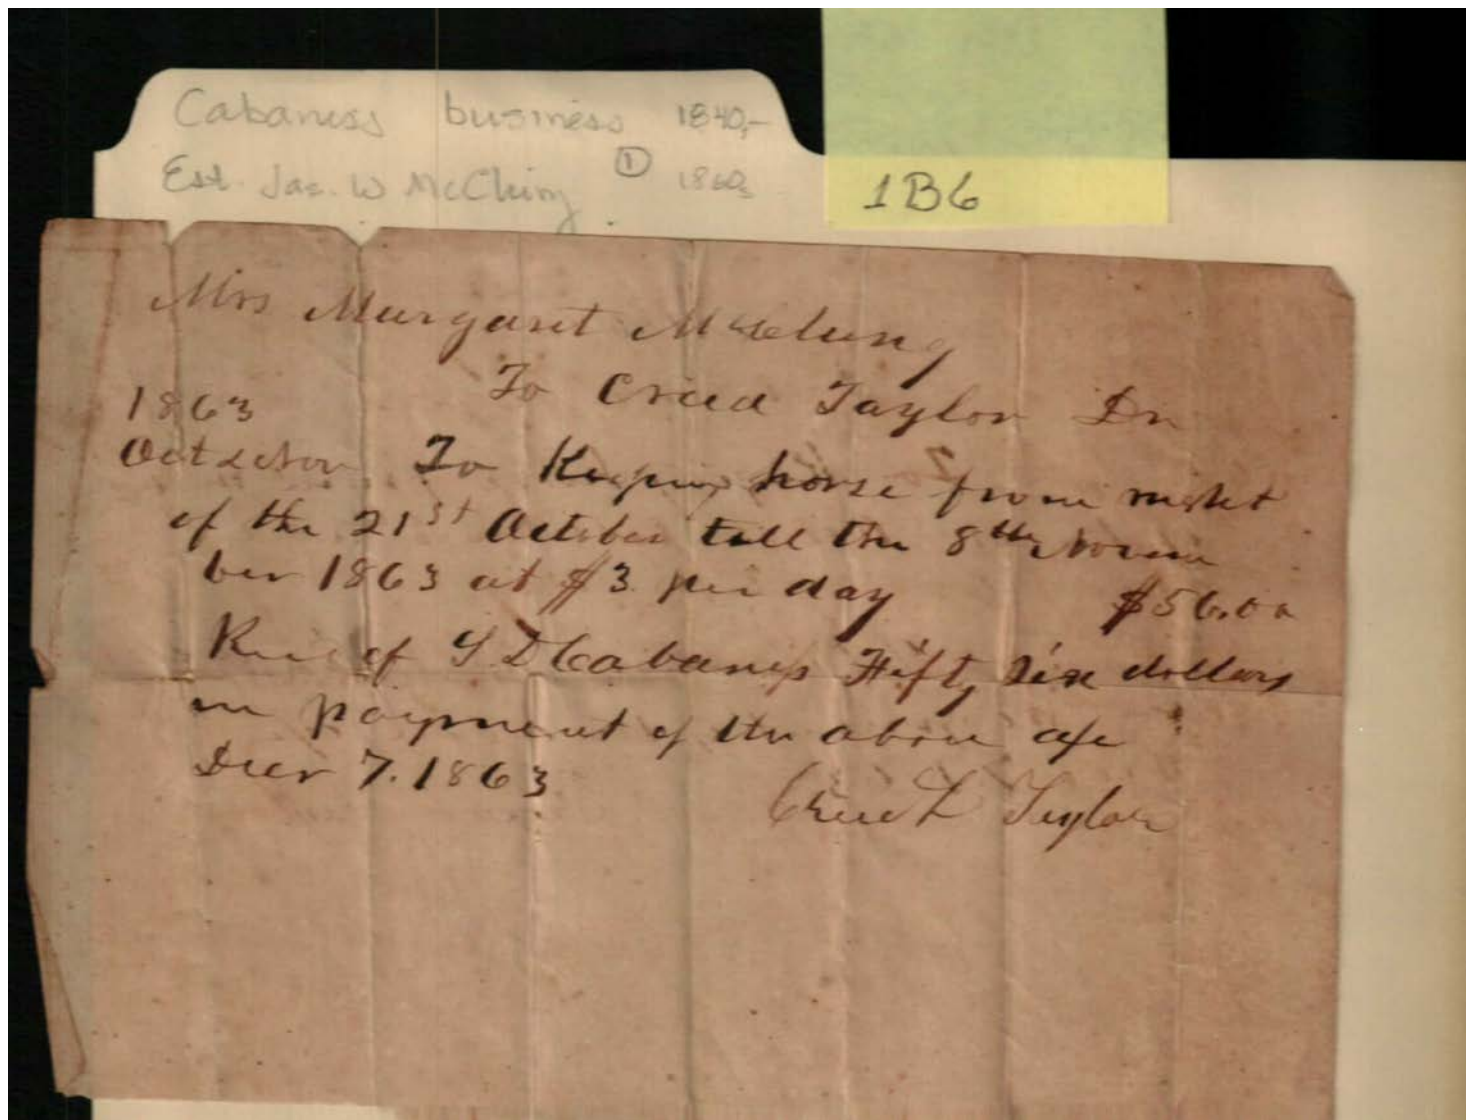 Cabaness business 1840,-
Est. Jas. W McClung ① 1860s
1B6
Mrs Margaret McClung
To Creed Taylor Dr
1863
Oct & Nov To Keeping horse from night
of the 21st October till the 8th Novem
ber 1863 at $3 per day $56.00
Recd of S D Cabaness Fifty six dollars
in payment of the above a/c
Decr 7. 1863
Creed Taylor